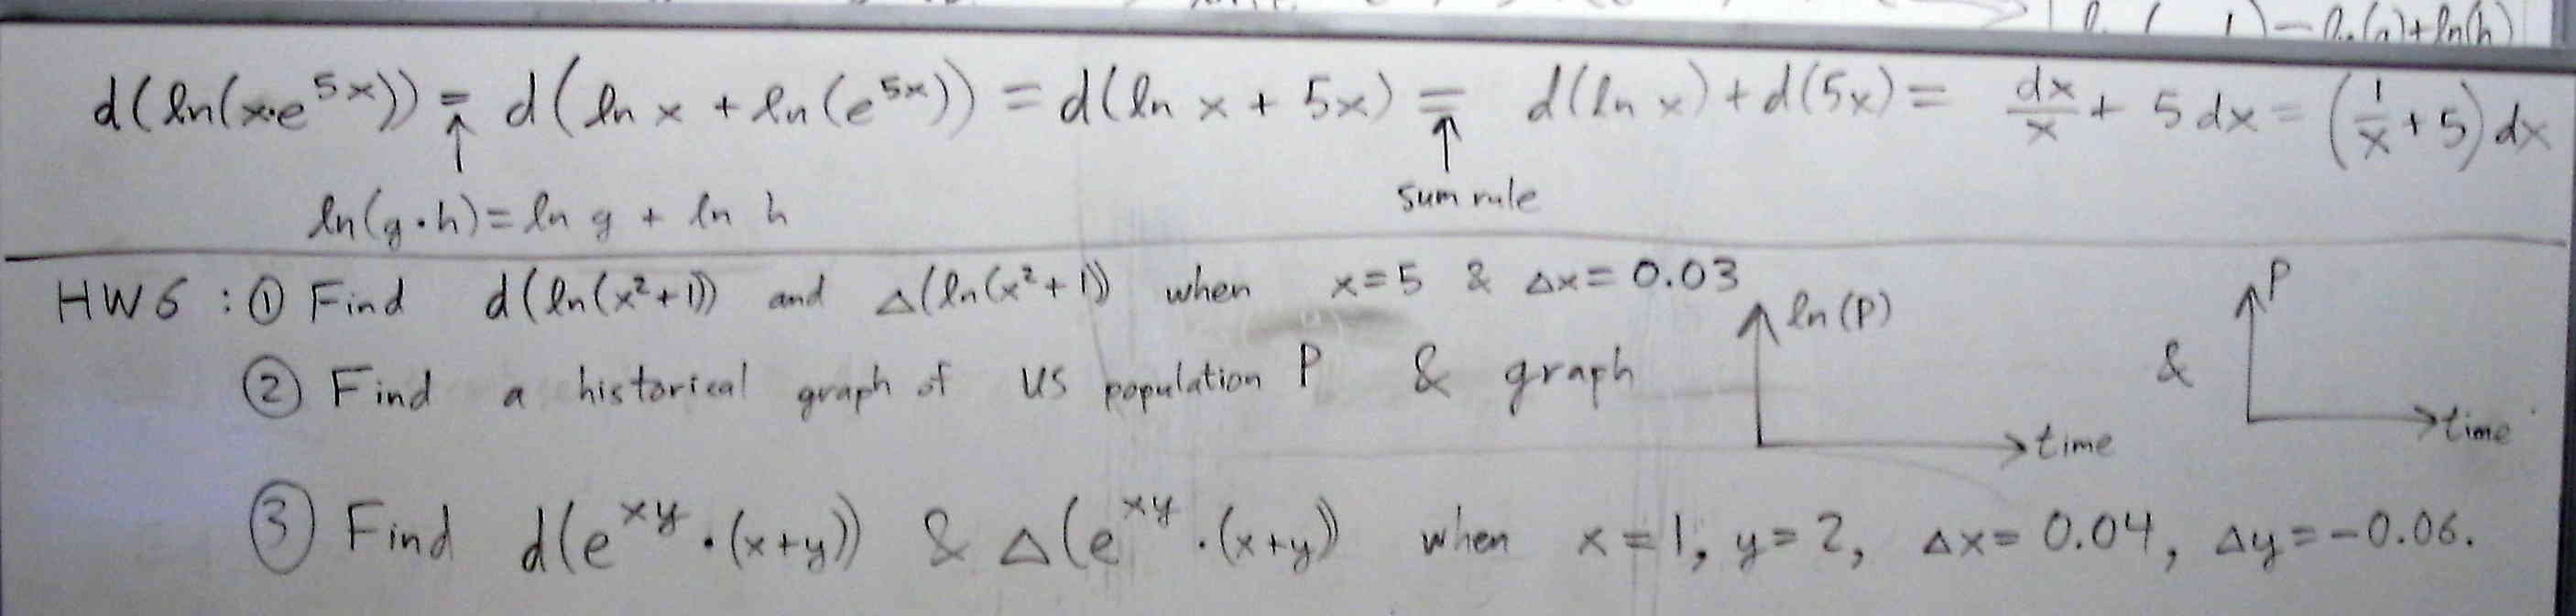 ln(g)+ln(h)
d(ln(x·e^5x)) = d(ln x + ln(e^5x)) = d(ln x + 5x) = d(ln x) + d(5x) = dx/x + 5 dx = (1/x + 5) dx
↑ ↑
ln(g·h) = ln g + ln h sum rule
HW6: ① Find d(ln(x²+1)) and Δ(ln(x²+1)) when x=5 & Δx=0.03
② Find a historical graph of US population P & graph ln(P) time & P time
③ Find d(e^xy·(x+y)) & Δ(e^xy·(x+y)) when x=1, y=2, Δx=0.04, Δy=-0.06.